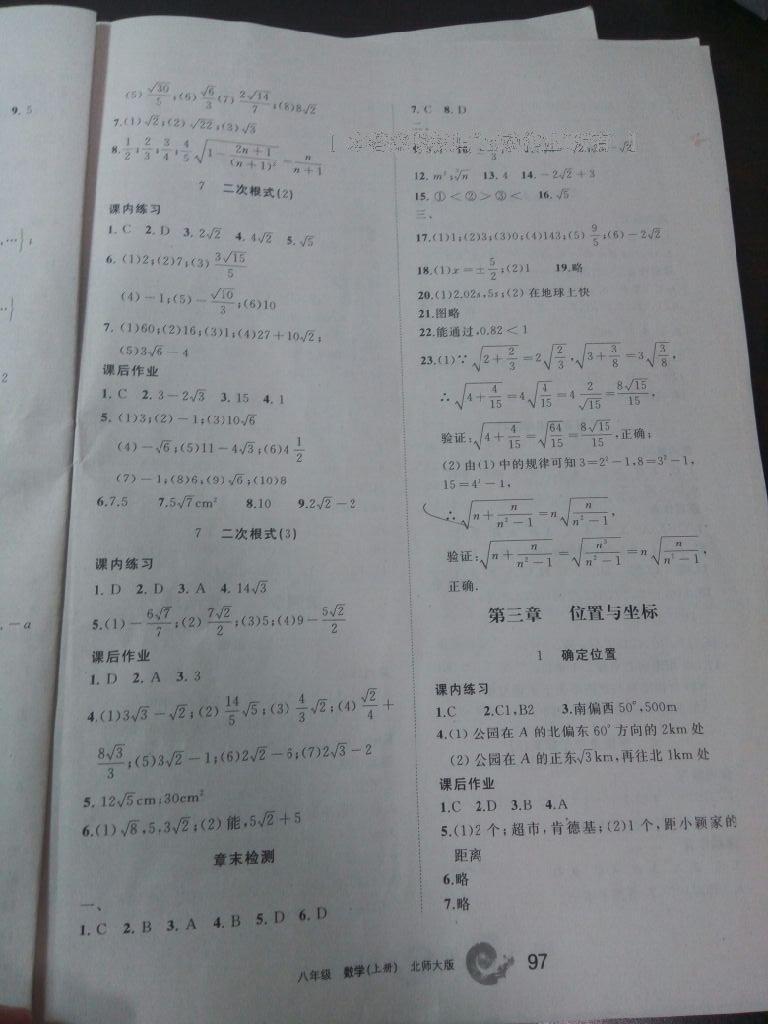 9. 5
,…};
…}
2
. -a
(5) √30/5;(6) √6/3 (7) 2√14/7;(8)8√2
7.(1)√2;(2)√22;(3)√3
8. 1/2;2/3;3/4;4/5 √(1-(2n+1)/(n+1)²)=n/(n+1)
7 二次根式(2)
课内练习
1. C 2. D 3. 2√2 4. 4√2 5. √5
6. (1)2;(2)7;(3) 3√15/5
(4)-1;(5)-√10/3;(6)10
7. (1)60;(2)16;(3)1;(4)27+10√2;
(5)3√6-4
课后作业
1. C 2. 3-2√3 3. 15 4. 1
5. (1)3;(2)-1;(3)10√6
(4)-√6;(5)11-4√3;(6)4 1/2
(7)-1;(8)6;(9)√6;(10)8
6.7.5 7.5√7cm² 8.10 9.2√2-2
7 二次根式(3)
课内练习
1. D 2. D 3. A 4. 14√3
5.(1)-6√7/7;(2) 7√2/2;(3)5;(4)9-5√2/2
课后作业
1. D 2. A 3. 3
4.(1)3√3-√2;(2) 14/5 √5;(3) 4/3 √2;(4) √2/4+
8√3/3;(5)3√2-1;(6)2√2-6;(7)2√3-2
5. 12√5cm;30cm²
6.(1)√8,5,3√2;(2)能,5√2+5
章末检测
一、
1. C 2. B 3. A 4. B 5. D 6. D
7. C 8. D
12. m²;ⁿ√n 13. 4 14. -2√2+3
15. ①<②>③< 16. √5
三、
17.(1)1;(2)3;(3)0;(4)143;(5) 9/5;(6)-2√2
18.(1)x=±5/2;(2)1 19.略
20.(1)2.02s,5s;(2)在地球上快
21.图略
22.能通过,0.82<1
23.(1)∵√(2+2/3)=2√(2/3),√(3+3/8)=3√(3/8),
∴√(4+4/15)=4√(4/15)=4 2/√15=8√15/15,
验证:√(4+4/15)=√(64/15)=8√15/15,正确;
(2)由(1)中的规律可知3=2²-1,8=3²-1,
15=4²-1,
∴√(n+n/(n²-1))=n√(n/(n²-1)),
验证:√(n+n/(n²-1))=√(n³/(n²-1))=n√(n/(n²-1)),
正确.
第三章 位置与坐标
1 确定位置
课内练习
1.C 2.C1,B2 3.南偏西50°,500m
4.(1)公园在A的北偏东60°方向的2km处
(2)公园在A的正东√3km,再往北1km处
课后作业
1.C 2.D 3.B 4.A
5.(1)2个;超市,肯德基;(2)1个,距小颖家的
距离
6.略
7.略
八年级 数学(上册) 北师大版 97